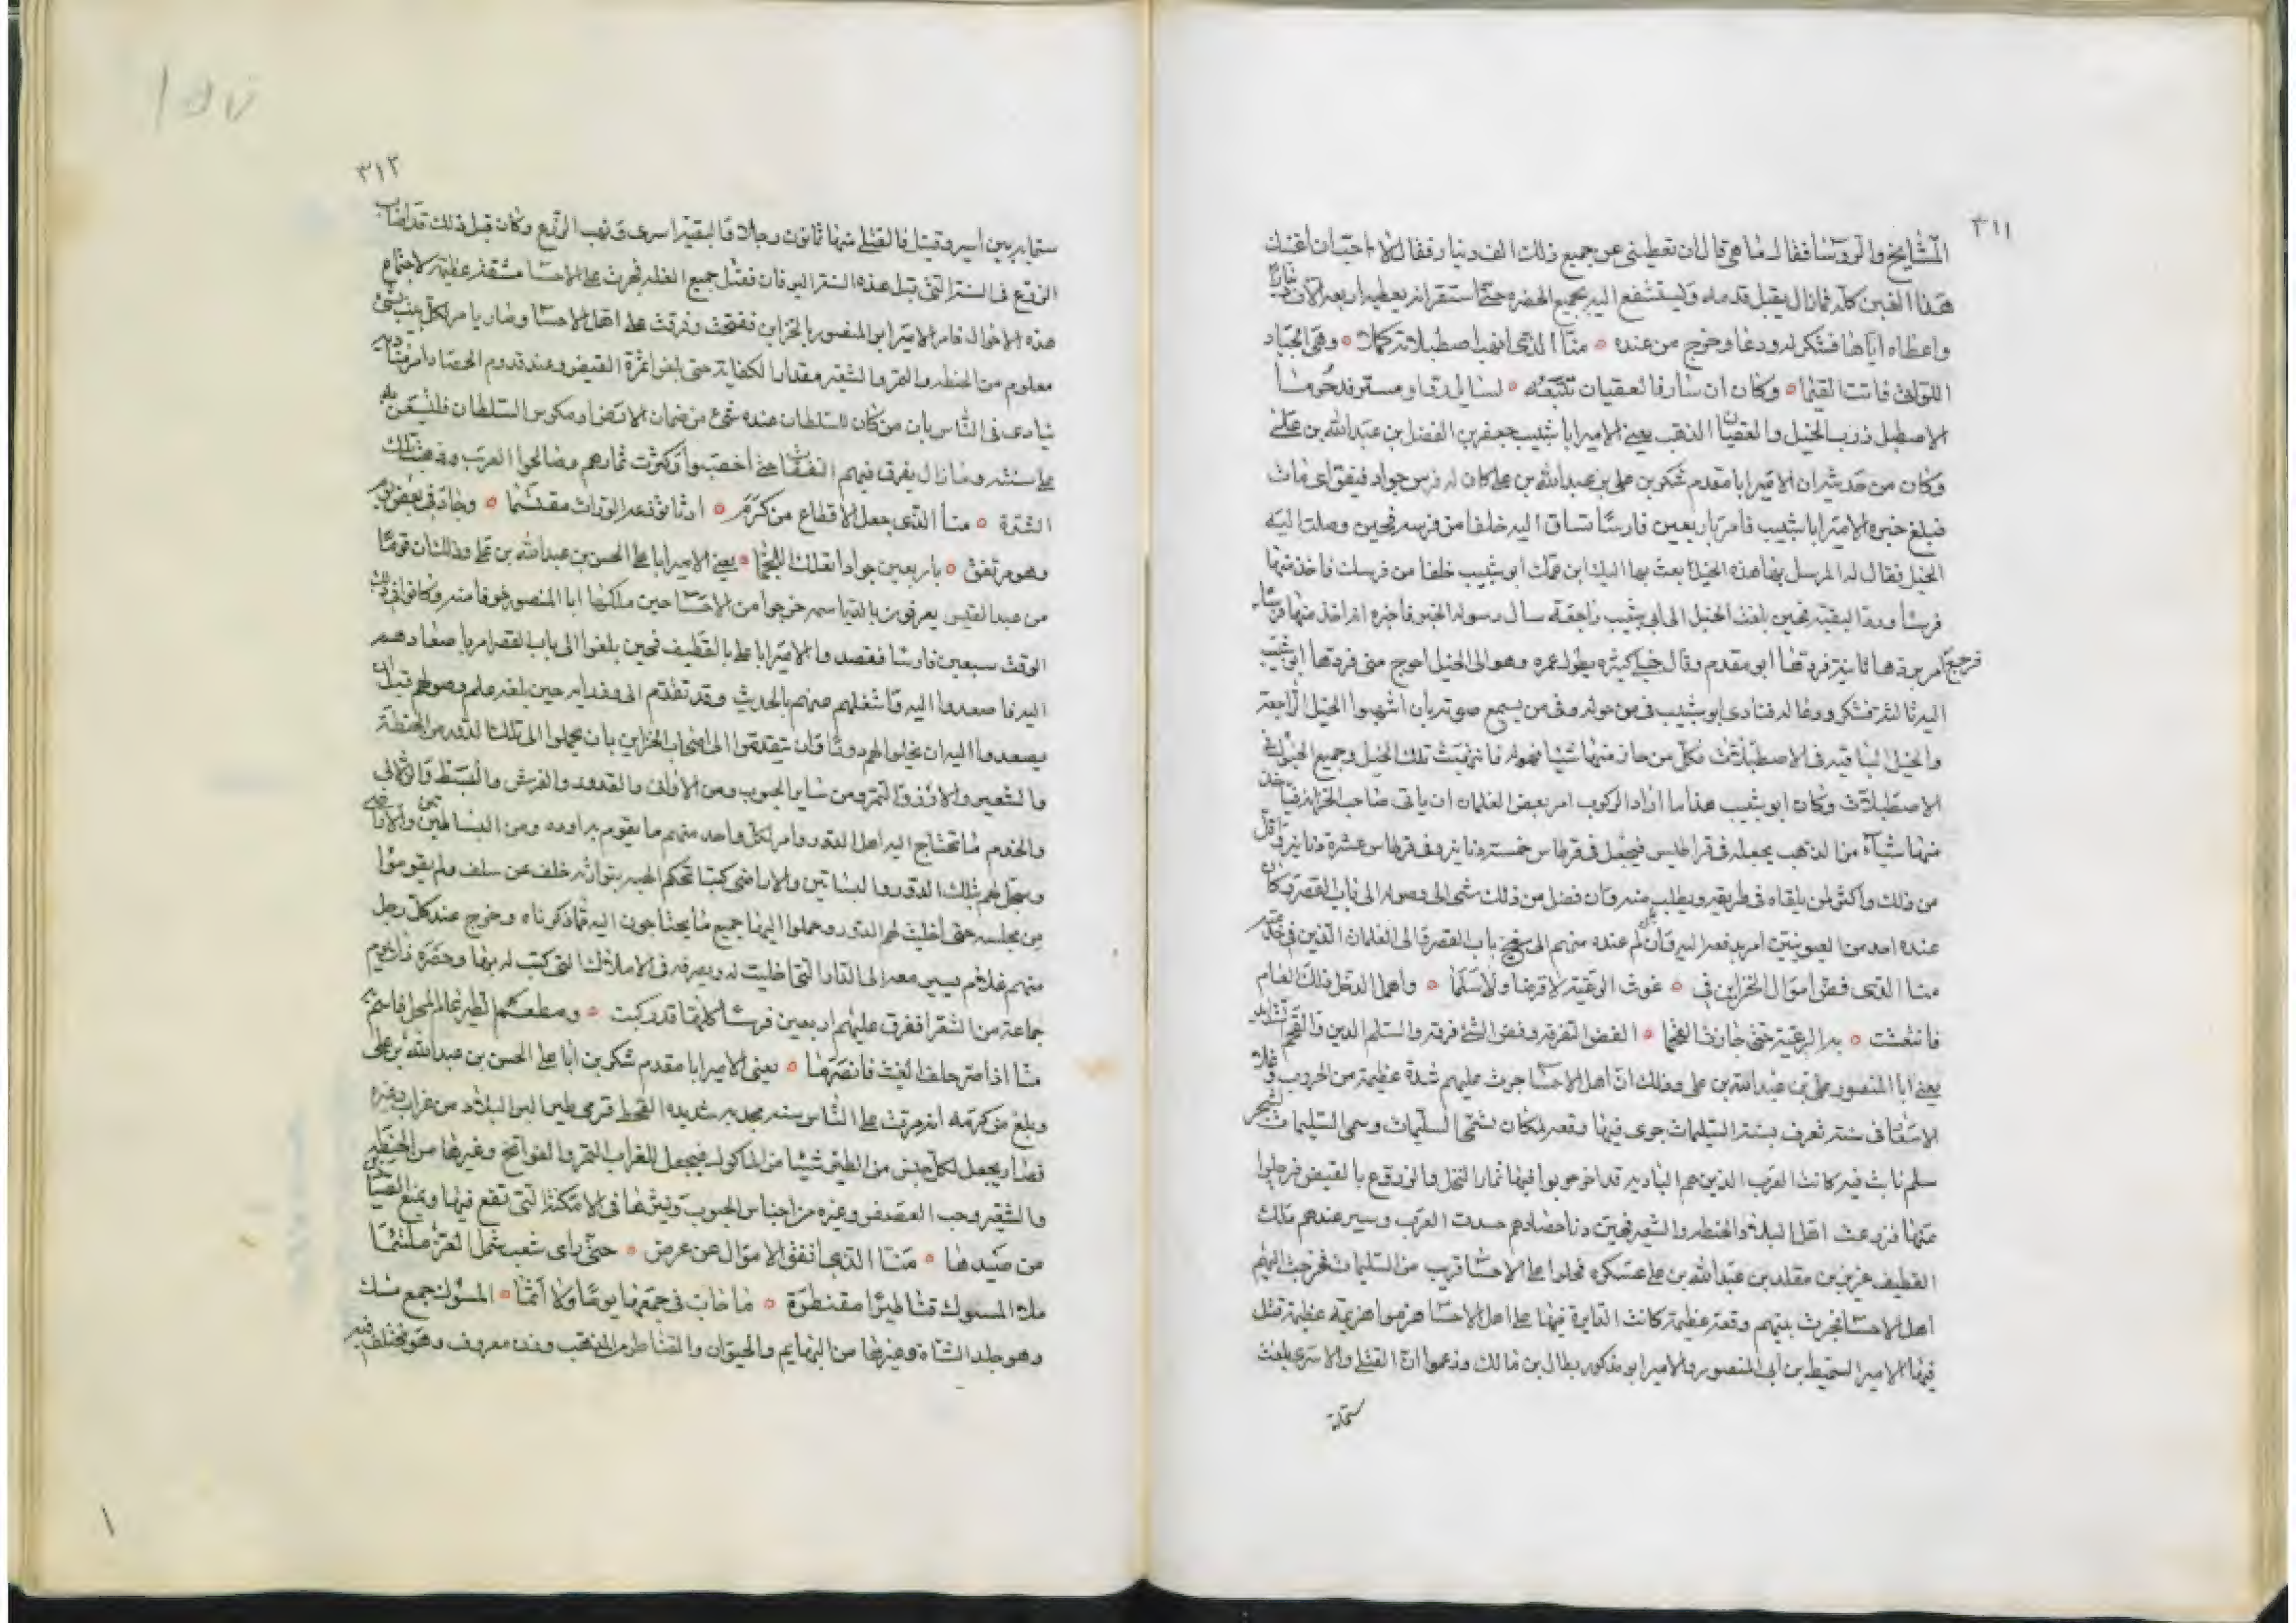 ٣١١
المشايخ والروسا فقال ما هي قال ان تعطيني عن جميع ذلك الف دينار فقال لا احب ان اغبنك
هذا الغبن كله فما زال يقبل قدمه ويستشفع اليه بجميع الحضره حتى استقر انه يعطيه اربعة الاف دينار
واعطاه اياها فشكر له ودعا وخرج من عنده ۞ منا الذي انهب اصطبلاته كملا ۞ وهي الجياد
اللواتي فاتت القيما ۞ وكان ان سار فالعقيان تتبعه ۞ لسايل او مستر فد
الاصطبل زرب الخيل والعقيان الذهب يعني الامير ابا شبيب جعفر بن الفضل بن عبد الله بن علي
وكان من حديثه ان الامير ابا مقدم شكر بن علي بن عبد الله بن علي كان له فرس جواد فنفق اي مات
فبلغ خبره الامير ابا شبيب فامر باربعين فارسا تساق اليه خلفا من فرسه فحين وصلت اليه
الخيل فقال له المرسل بها هذه الخيل بعث بها اليك ابن عمك ابو شبيب خلفا من فرسك فاخذ منها
فرسا ورد البقية فحين بلغت الخيل الى ابي شبيب راجعة سال رسوله الخبر فاخبره انه اخذ منها فرسا
فرجع امر بردها ثانية فردها ابو مقدم وقال يطول عمره وهو الى الخيل احوج مني فردها ابو شبيب
اليه ثالثة فشكر ودعا له فنادى ابو شبيب في من حوله وفي من يسمع صوته بان انهبوا الخيل الراجعة
والخيل الباقيه في الاصطبلات فكل من حاز منها شيئا فهو له فانتهبت تلك الخيل وجميع الخيل التي في
الاصطبلات وكان ابو شبيب هذا ما اراد الركوب امر بعض الغلمان ان ياتي صاحب الخزانه فياخذ
منها شيأ من الذهب يجعله في قراطيس فيجعل في قرطاس خمسة دنانير وفي قرطاس عشرة دنانير واقل
من ذلك واكثر لمن يلقاه في طريقه ويطلب منه وان فضل من ذلك شي الى وصوله الى باب القصر وكان
عنده احد من العيونيين امر بدفعه اليه وان لم عنده منهم الى باب القصر الى الغلمان الذين في خدمته
منا الذي فض اموال الخزاين في ۞ غوث الرعية لا قرضا ولا سلما ۞ واهمل الدخل ذلك العام
فانتعشت ۞ به الرعية حتى جازت القحما ۞ الفض التفرقه وفض الشي فرقه والسلم الدين والقحم الشدايد
يعني ابا المنصور علي بن عبد الله بن علي وذلك ان اهل الاحسا جرت عليهم شدة عظيمة من الحروب وغلاء
الاسعار في سنة تعرف بسنة السليمات جرى فيها وقعه لمكان يسمى السليمات وسمى السليمات لشجر
سلم نابت فيه كانت العرب الذين هم الباديه قد اخرجوا فيها ثمار النخل والزروع بالقيض فرحلوا
عنها فزرعت اهل البلد الحنطه والشعير فحين دنا حصادهم حسدت العرب وسير عندهم ملك
القطيف عزيز بن مقلد بن عبد الله بن علي عسكره فحلوا على الاحسا قريب من السليمات فخرجت اليهم
اهل الاحسا فجرت بينهم وقعة عظيمة كانت الدايرة فيها على اهل الاحسا هزموا هزيمة عظيمة قتل
فيها الامير السميط بن ابي المنصور والامير ابو مذكور بطال بن مالك وزعموا ان القتلى والاسرى بلغت
ستماية
٣١٢
ستمايه بين اسير وقتيل فالقتلى منها ثمانون رجلا والبقية اسرى ونهب الزرع وكان قبل ذلك قد اصاب
الزرع في السنة التي قبل هذه السنة اليرقان فقتل جميع الغله فجرت على الاحسا مشقة عظيمة لاجتماع
هذه الاحوال فامر الامير ابو المنصور بالخزاين ففتحت وفرقت على اهل الاحسا وصار يامر لكل بيت بشي
معلوم من الحنطه والتمر والشعير مقدار الكفاية حتى بلغوا ثمرة القيض وعند قدوم الحصاد امر مناديه
ينادي في الناس بان من كان للسلطان عنده شي من ضمان الارض او مكوس السلطان فلينتفع به
على سنته وما زال يفرق فيهم النفقات حتى اخصبوا وكثرت ثمارهم وصالحوا العرب وذهبت تلك
الشدة ۞ منا الذي جعل الاقطاع من كرم ۞ ارثا توزعه الوراث مقتسما ۞ وجاد في بعض يوم
وهو مرتفق ۞ باربعين جوادا تعلك اللجما ۞ يعني الامير ابا علي الحسن بن عبد الله بن علي وذلك ان قوما
من عبد القيس يعرفون بالقياسمه خرجوا من الاحسا حين ملكها ابا المنصور خوفا منه وكانوا في ذلك
الوقت سبعين فارسا فقصدوا الامير ابا علي بالقطيف فحين بلغوا الى باب القصر امر باصعادهم
اليه فاصعدوا اليه واشغلهم عنهم بالحديث وقد تقدم الى وزرايه حين بلغه علم وصولهم قبل ان
يصعدوا اليه ان يخلوا لهم دورا وان يتقدموا الى اصحاب الخزاين بان يحملوا الى تلك الدور من الحنطة
والشعير والارز والتمر ومن ساير الحبوب ومن الاواني والقدور والفرش والبسط والاثاث
والخدم ما تحتاج اليه اهل الدور وامر لكل واحد منهم ما يقوم به اوده ومن البساتين والاراضي
وسجل لهم بتلك الدور والبساتين والاراضي كتبا تحكم لهم بتوارثه خلف عن سلف ولم يقوموا
من مجلسه حتى اخليت لهم الدور وحملوا اليها جميع ما يحتاجون اليه مما ذكرناه وخرج عند كل رجل
منهم غلام يسير معه الى الدار التي اخليت له ويصرفه في الاملاك التي كتب له بها وحضره ذلك اليوم
جماعة من الشعرا ففرق عليهم اربعين فرسا كلها قد ركبت ۞ ومطعم الطير عام المحل فاسم به
منا اذا صر خلف الغيث فانصرما ۞ يعني الامير ابا مقدم شكر بن ابا علي الحسن بن عبد الله بن علي
وبلغ من كرمه انه مرت على الناس سنه مجدبه شديده القحط فرمى طير البر البلاد من غراب وغيره
فصار يجعل لكل جنس من الطير شيئا من الماكول فيجعل للغراب التمر والفواتخ وغيرها من الحنطه
والشعير وحب العصفر وغيره من اجناس الحبوب وينثرها في الامكنة التي تقع فيها ويمنع الصبيان
من صيدها ۞ منا الذي انفق الاموال عن عرض ۞ حتى راى شعب شمل العز ملتئما
ملأ المسوك قناطيرا مقنطرة ۞ ما خاب في جمعها يوما ولا اثما ۞ المسوك جمع مسك
وهو جلد الشاة وغيرها من البهايم والحيوان والقناطر من الذهب وزن معروف وهو مختلف فيه